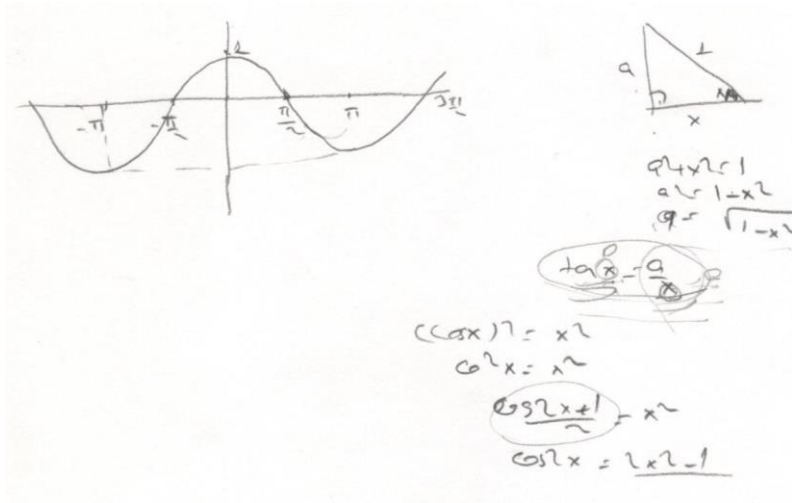 1
-π
-π/2
π/2
π
3π/2
a
1
x
a²+x²=1
a²=1-x²
a=√1-x²
tan x = a/x
(cosx)²=x²
cos²x=x²
cos2x+1/2=x²
cos2x=2x²-1